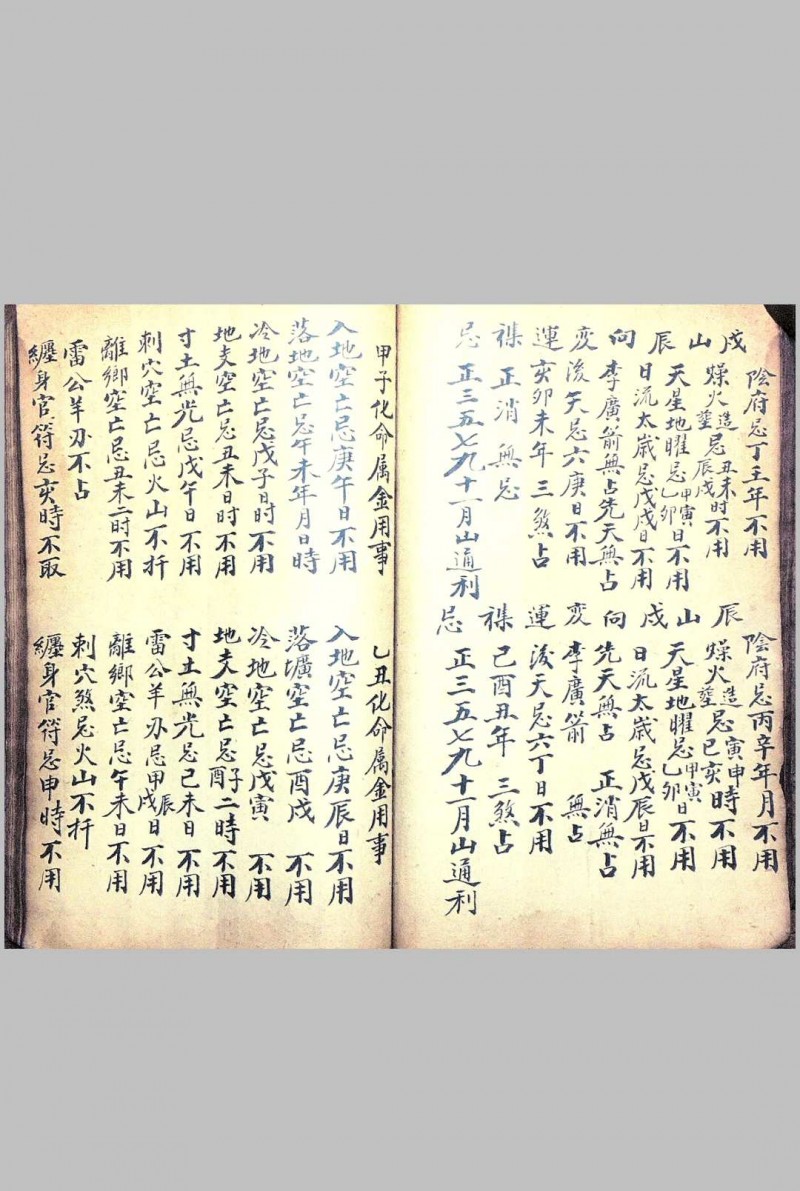 戌山辰向変運襍忌
陰府忌丁壬年不用
燥火造塟忌丑未辰戌时不用
天星地曜忌甲寅乙卯日不用
日流太歲忌戊戌日不用
李廣箭無占先天無占
後天忌六庚日不用
亥卯未年三煞占
正消無忌
正三五七九十一月山通利
辰山戌向変運襍忌
陰府忌丙辛年月不用
燥火造塟忌寅申巳亥時不用
天星地曜忌甲寅乙卯日不用
日流太歲忌戊辰日不用
先天無占 正消無占
李廣箭 無占
後天忌六丁日不用
己酉丑年 三煞占
正三五七九十一月山通利
甲子化命属金用事
入地空亡忌庚午日不用
落地空亡忌午未年月日時
冷地空亡忌戊子日时不用
地支空亡忌丑未日时不用
寸土無光忌戊午日不用
刺穴空亡忌火山不扦
離鄉空亡忌丑未二时不用
雷公羊刃不占
纏身官符忌亥時不取
乙丑化命属金用事
入地空亡忌庚辰日不用
落壙空亡忌酉戌 不用
冷地空亡忌戊寅 不用
地支空亡忌子酉二時不用
寸土無光忌己未日不用
雷公羊刃忌甲辰戌日不用
離鄉空亡忌午未日不用
刺穴煞忌火山不扦
纏身官符忌申時不用